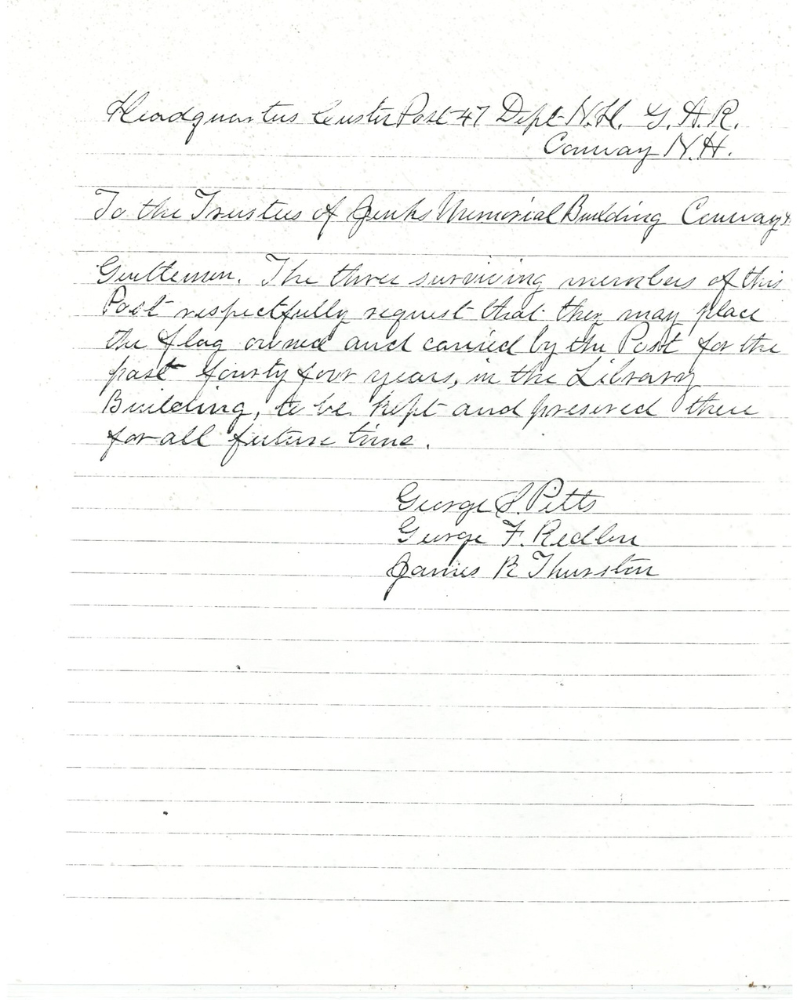 Headquarters Custer Post 47 Dept N.H. G. A. R.
Conway N.H.
To the Trustees of Jenks Memorial Building Conway
Gentlemen. The three surviving members of this
Post respectfully request that they may place
the flag owned and carried by the Post for the
past fourty four years, in the Library
Building, to be kept and preserved there
for all future time.
George S. Pitts
George F. Redlon
James R Thurston